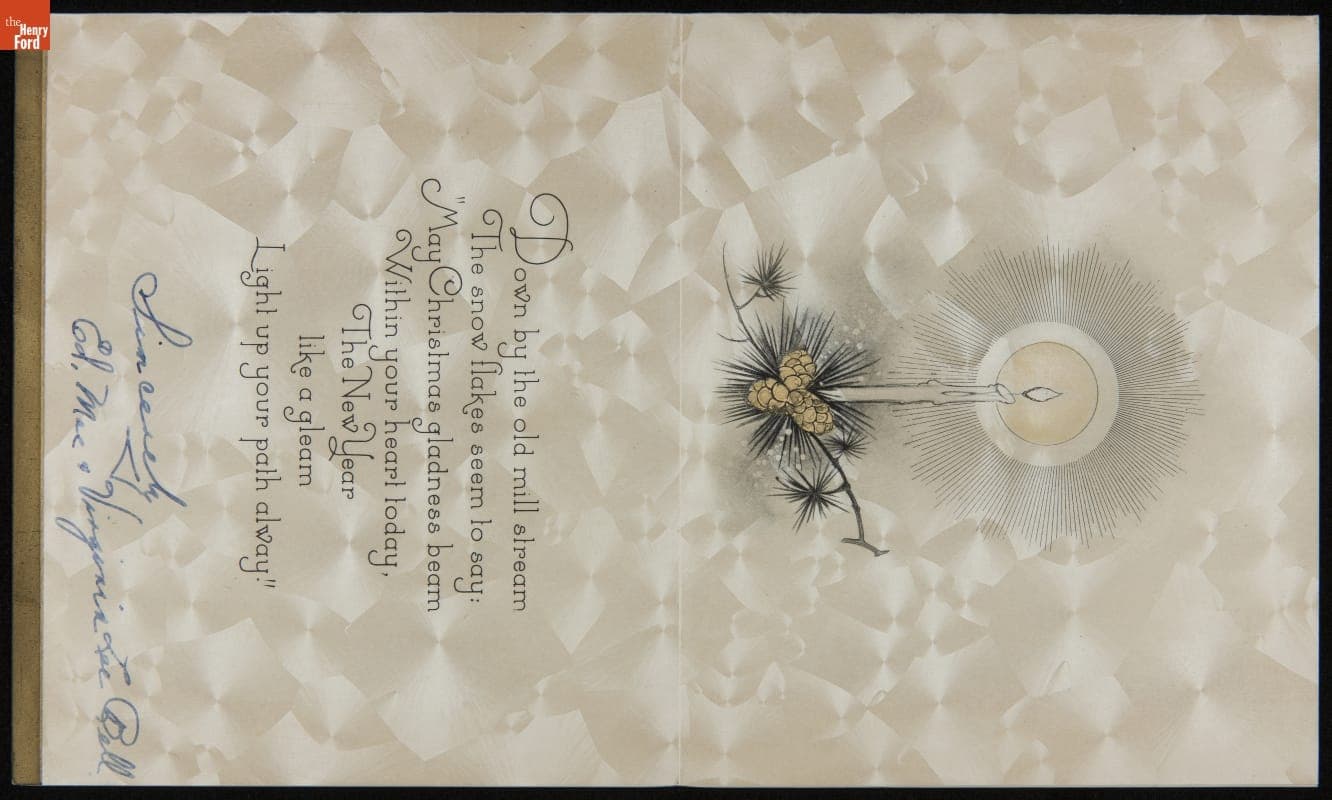 the
Henry
Ford
Down by the old mill stream
The snow flakes seem to say:
"May Christmas gladness beam
Within your heart today,
The New Year
like a gleam
Light up your path alway."
Sincerely
Ed. Mac & Virginia Lee Bell